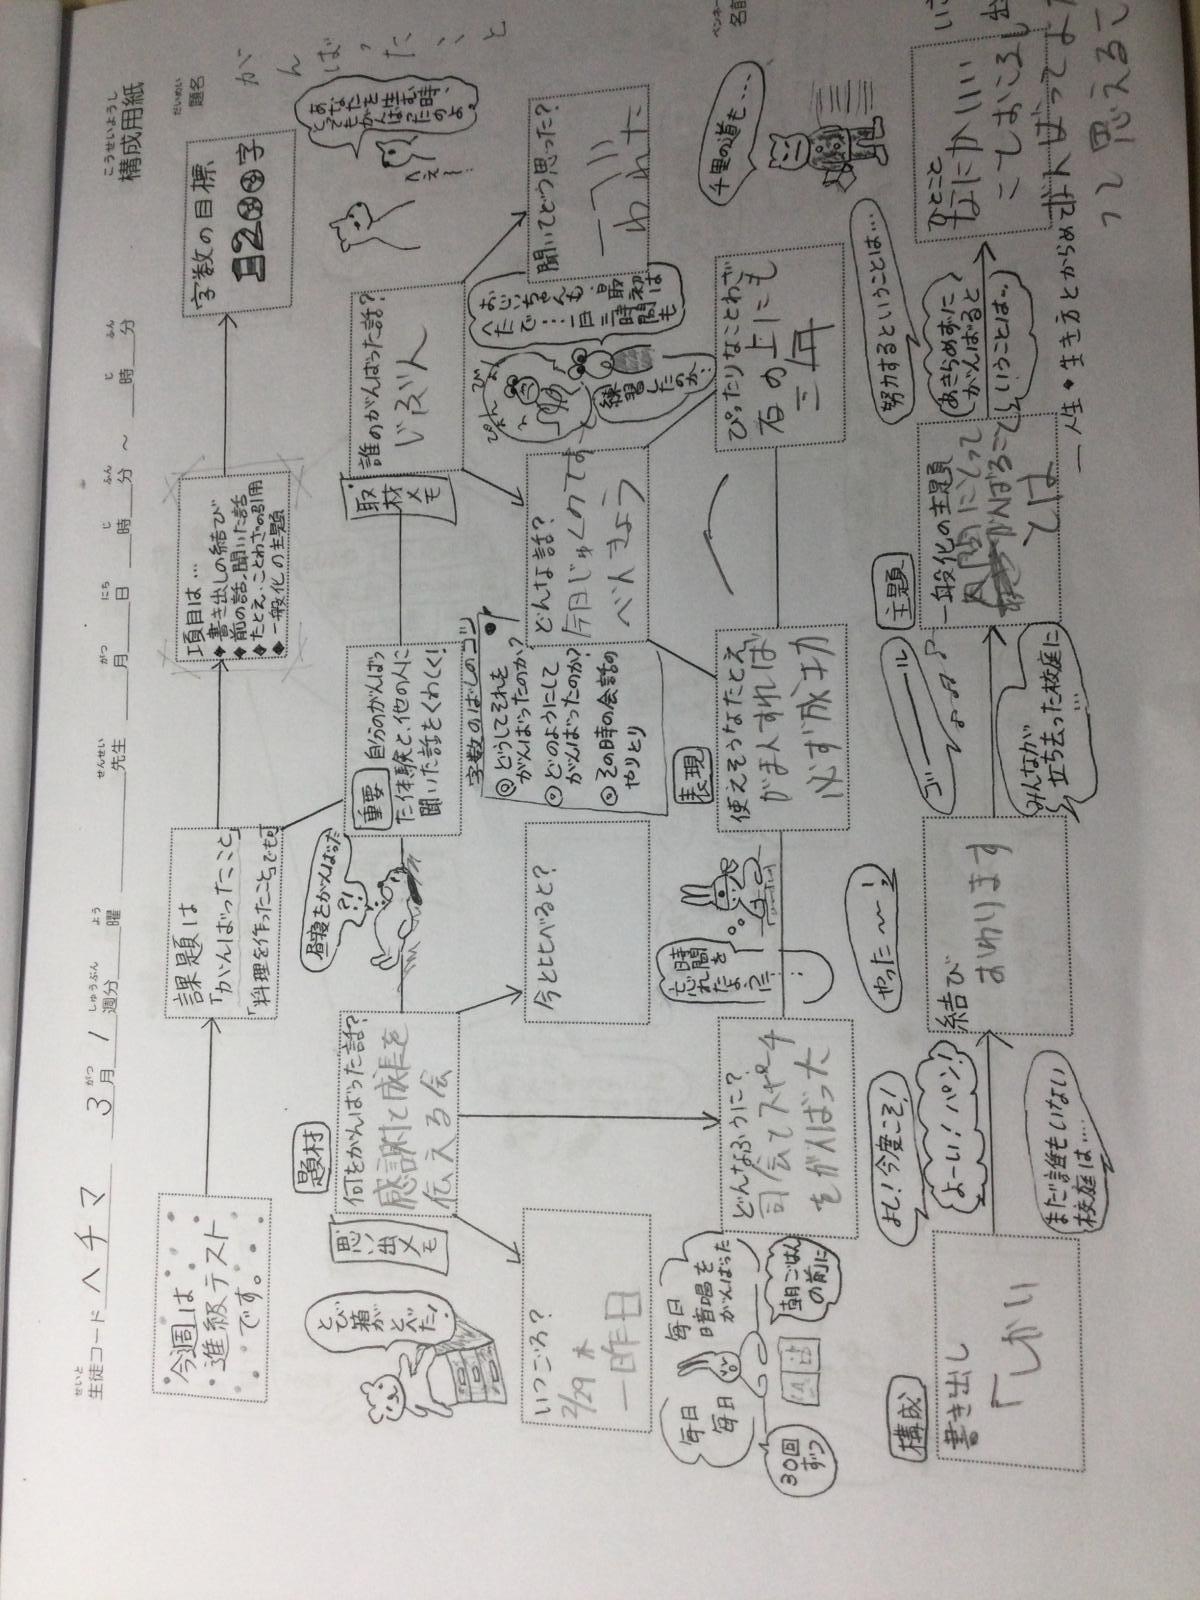 こうせいようし
構成用紙
せいと
生徒コード ヘチマ
がつ しゅうぶん よう
3月1週分 曜
せんせい
先生
がつ にち じ ふん じ ふん
月 日 時 分 ~ 時 分
だいめい
題名
がんばったこと
今週は
進級テスト
です。
課題は
「がんばったこと」
「料理を作ったこと」でも可
項目は…
◆書き出しの結び
◆前の話、聞いた話
◆たとえ、ことわざの引用
◆一般化の主題
字数の目標
1200字
思い出メモ
題材
何をがんばった話?
感謝と成長を
伝える会
とび箱が
とべた!
昼寝をがんばった
重要
自分のがんばっ
た体験と、他の人に
聞いた話をくわしく!
取材メモ
誰のがんばった話?
じぶん
へぇ~!
あなたを
生む時、
とってもがんばったのよ。
いつごろ?
2/29 木
一昨日
今と比べると?
字数のばしのコツ
◎どうしてそれを
がんばったのか?
○どのようにして
がんばったのか?
○その時の会話の
やりとり
どんな話?
今日じゅくのです
べんきょう
おじいちゃんも最初は
へたで…一日三時間も
練習したのか?
聞いてどう思った?
毎日
毎日
毎日
暗唱を
がんばった
30回
ずつ
朝ごはん
の前に
どんなふうに?
司会でスピーチ
をがんばった
時間を
忘れた
ように…
表現
使えそうなたとえ
がまんすれば
必ず成功
ぴったりなことわざ
石の上にも
三年
千里の道も…
構成
書き出し
「しかい
よし!今度こそ!
よーい!パン!
まだ誰もいない
校庭は……
結び
おわります
やった~~!
ゴーール
みんなが
立ち去った校庭に
…
主題
一般化の主題
人間にとって
がんばること
とは
努力するということは…
あきらめずに
がんばると
いうことは…
ひとこと
一人生・生き方とからめて